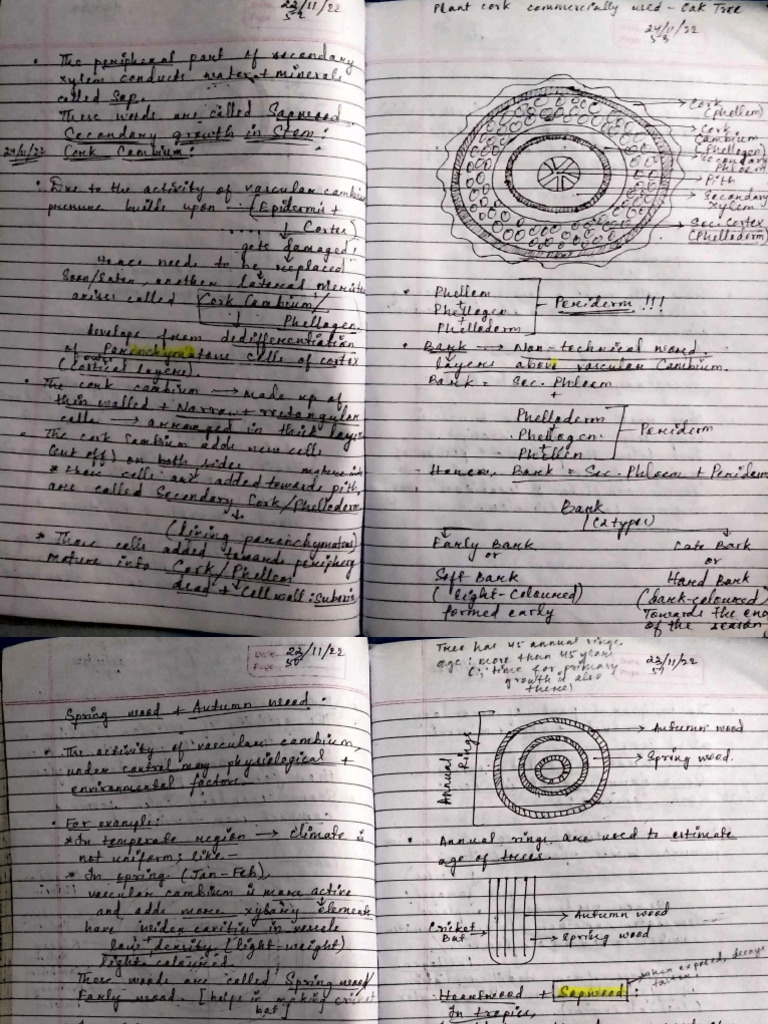 23/11/22
52
• The peripheral part of secondary
xylem conducts water + minerals
called Sap.
These woods are called Sapwood.
Secondary growth in Stem:
24/11/22 Cork Cambium:
• Due to the activity of vascular cambium
pressure builds upon → (Epidermis +
Cortex)
gets damaged!
Hence need to be replaced
Soon/Later, another lateral meriste
arises called Cork Cambium/
Phellogen.
develops from dedifferentiation
of Parenchymatous cells of cortex
(Cortical layers).
• The cork cambium → made up of
thin walled + Narrow + rectangular
cells → arranged in thick layers
• The cork cambium adds new cells
(cut off) on both sides
* These cells are added towards pith,
are called Secondary Cork/Phelloderm
(living parenchymatous)
* Those cells added towards periphery
mature into Cork/Phellem
dead + Cell wall: Suberin
Plant cork commercially used - Oak Tree
24/11/22
53
Cork
(phellem)
Cork
Cambium
(Phellogen)
Secondary
Phloem
Pith
Secondary
xylem
Sec. Cortex
(Phelloderm)
• Phellem
+
Phellogen
+
Phelloderm
Periderm !!!
• Bark → Non-technical word
layers above vascular Cambium.
Bark = Sec. Phloem
+
Phelloderm
+
Phellogen
+
Phellem
Periderm
Hence, Bark = Sec. Phloem + Periderm
Bark
(2 types)
Early Bark
or
Soft Bark
(Light-Coloured)
formed early
Late Bark
or
Hard Bark
(dark-coloured)
Towards the end
of the season
23/11/22
50
Spring wood + Autumn wood:
• The activity of vascular cambium,
under control many physiological +
environmental factors.
• For example:
* In temperate region → climate is
not uniform; like -
* In spring (Jan-Feb),
vascular cambium is more active
and adds more xylary elements
have wider cavities in vessels
low density (light-weight)
light coloured.
These woods are called Spring wood/
Early wood. [helps in making cricket
bat]
Tree has 45 annual rings,
age: more than 45 years
(∵ time for primary
growth is also
there)
23/11/22
51
Annual Rings
Autumn wood
Spring wood.
• Annual rings are used to estimate
age of trees.
Cricket
Bat
Autumn wood
Spring wood
when exposed, decays
faster.
Heartwood + Sapwood:
In tropics,